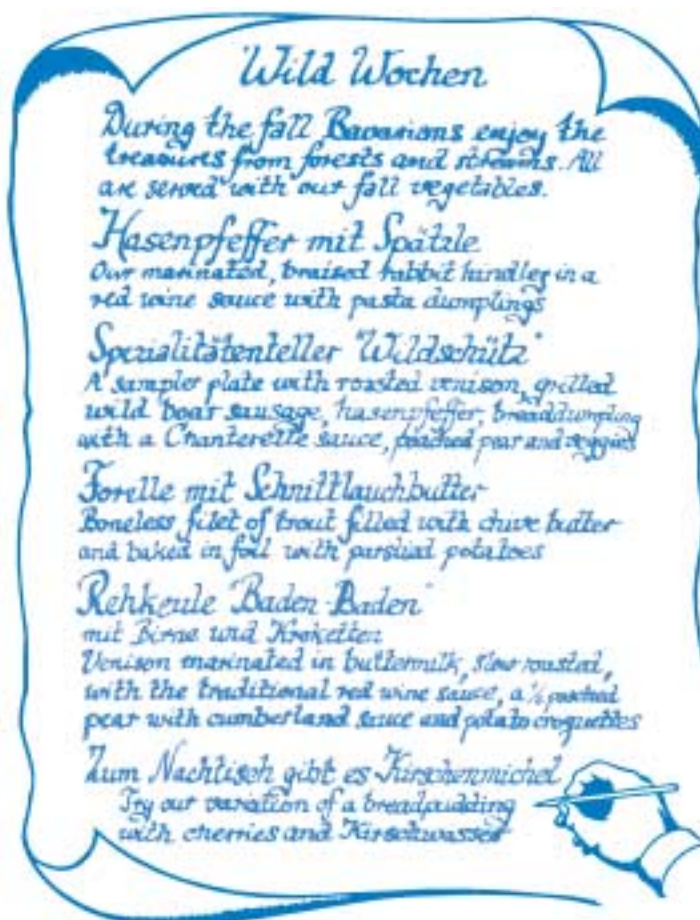 Wild Wochen
During the fall Bavarians enjoy the
treasures from forests and streams. All
are served with our fall vegetables.
Hasenpfeffer mit Spätzle
Our marinated, braised rabbit hindleg in a
red wine sauce with pasta dumplings
Spezialitätenteller "Wildschütz"
A sampler plate with roasted venison, grilled
wild boar sausage, hasenpfeffer, breaddumpling
with a Chanterelle sauce, poached pear and veggies
Forelle mit Schnittlauchbutter
Boneless filet of trout filled with chive butter
and baked in foil with parslied potatoes
Rehkeule "Baden-Baden"
mit Birne und Kroketten
Venison marinated in buttermilk, slow roasted,
with the traditional red wine sauce, a ½ poached
pear with cumberland sauce and potato croquettes
Zum Nachtisch gibt es Kirschenmichel
Try our variation of a breadpudding
with cherries and Kirschwasser